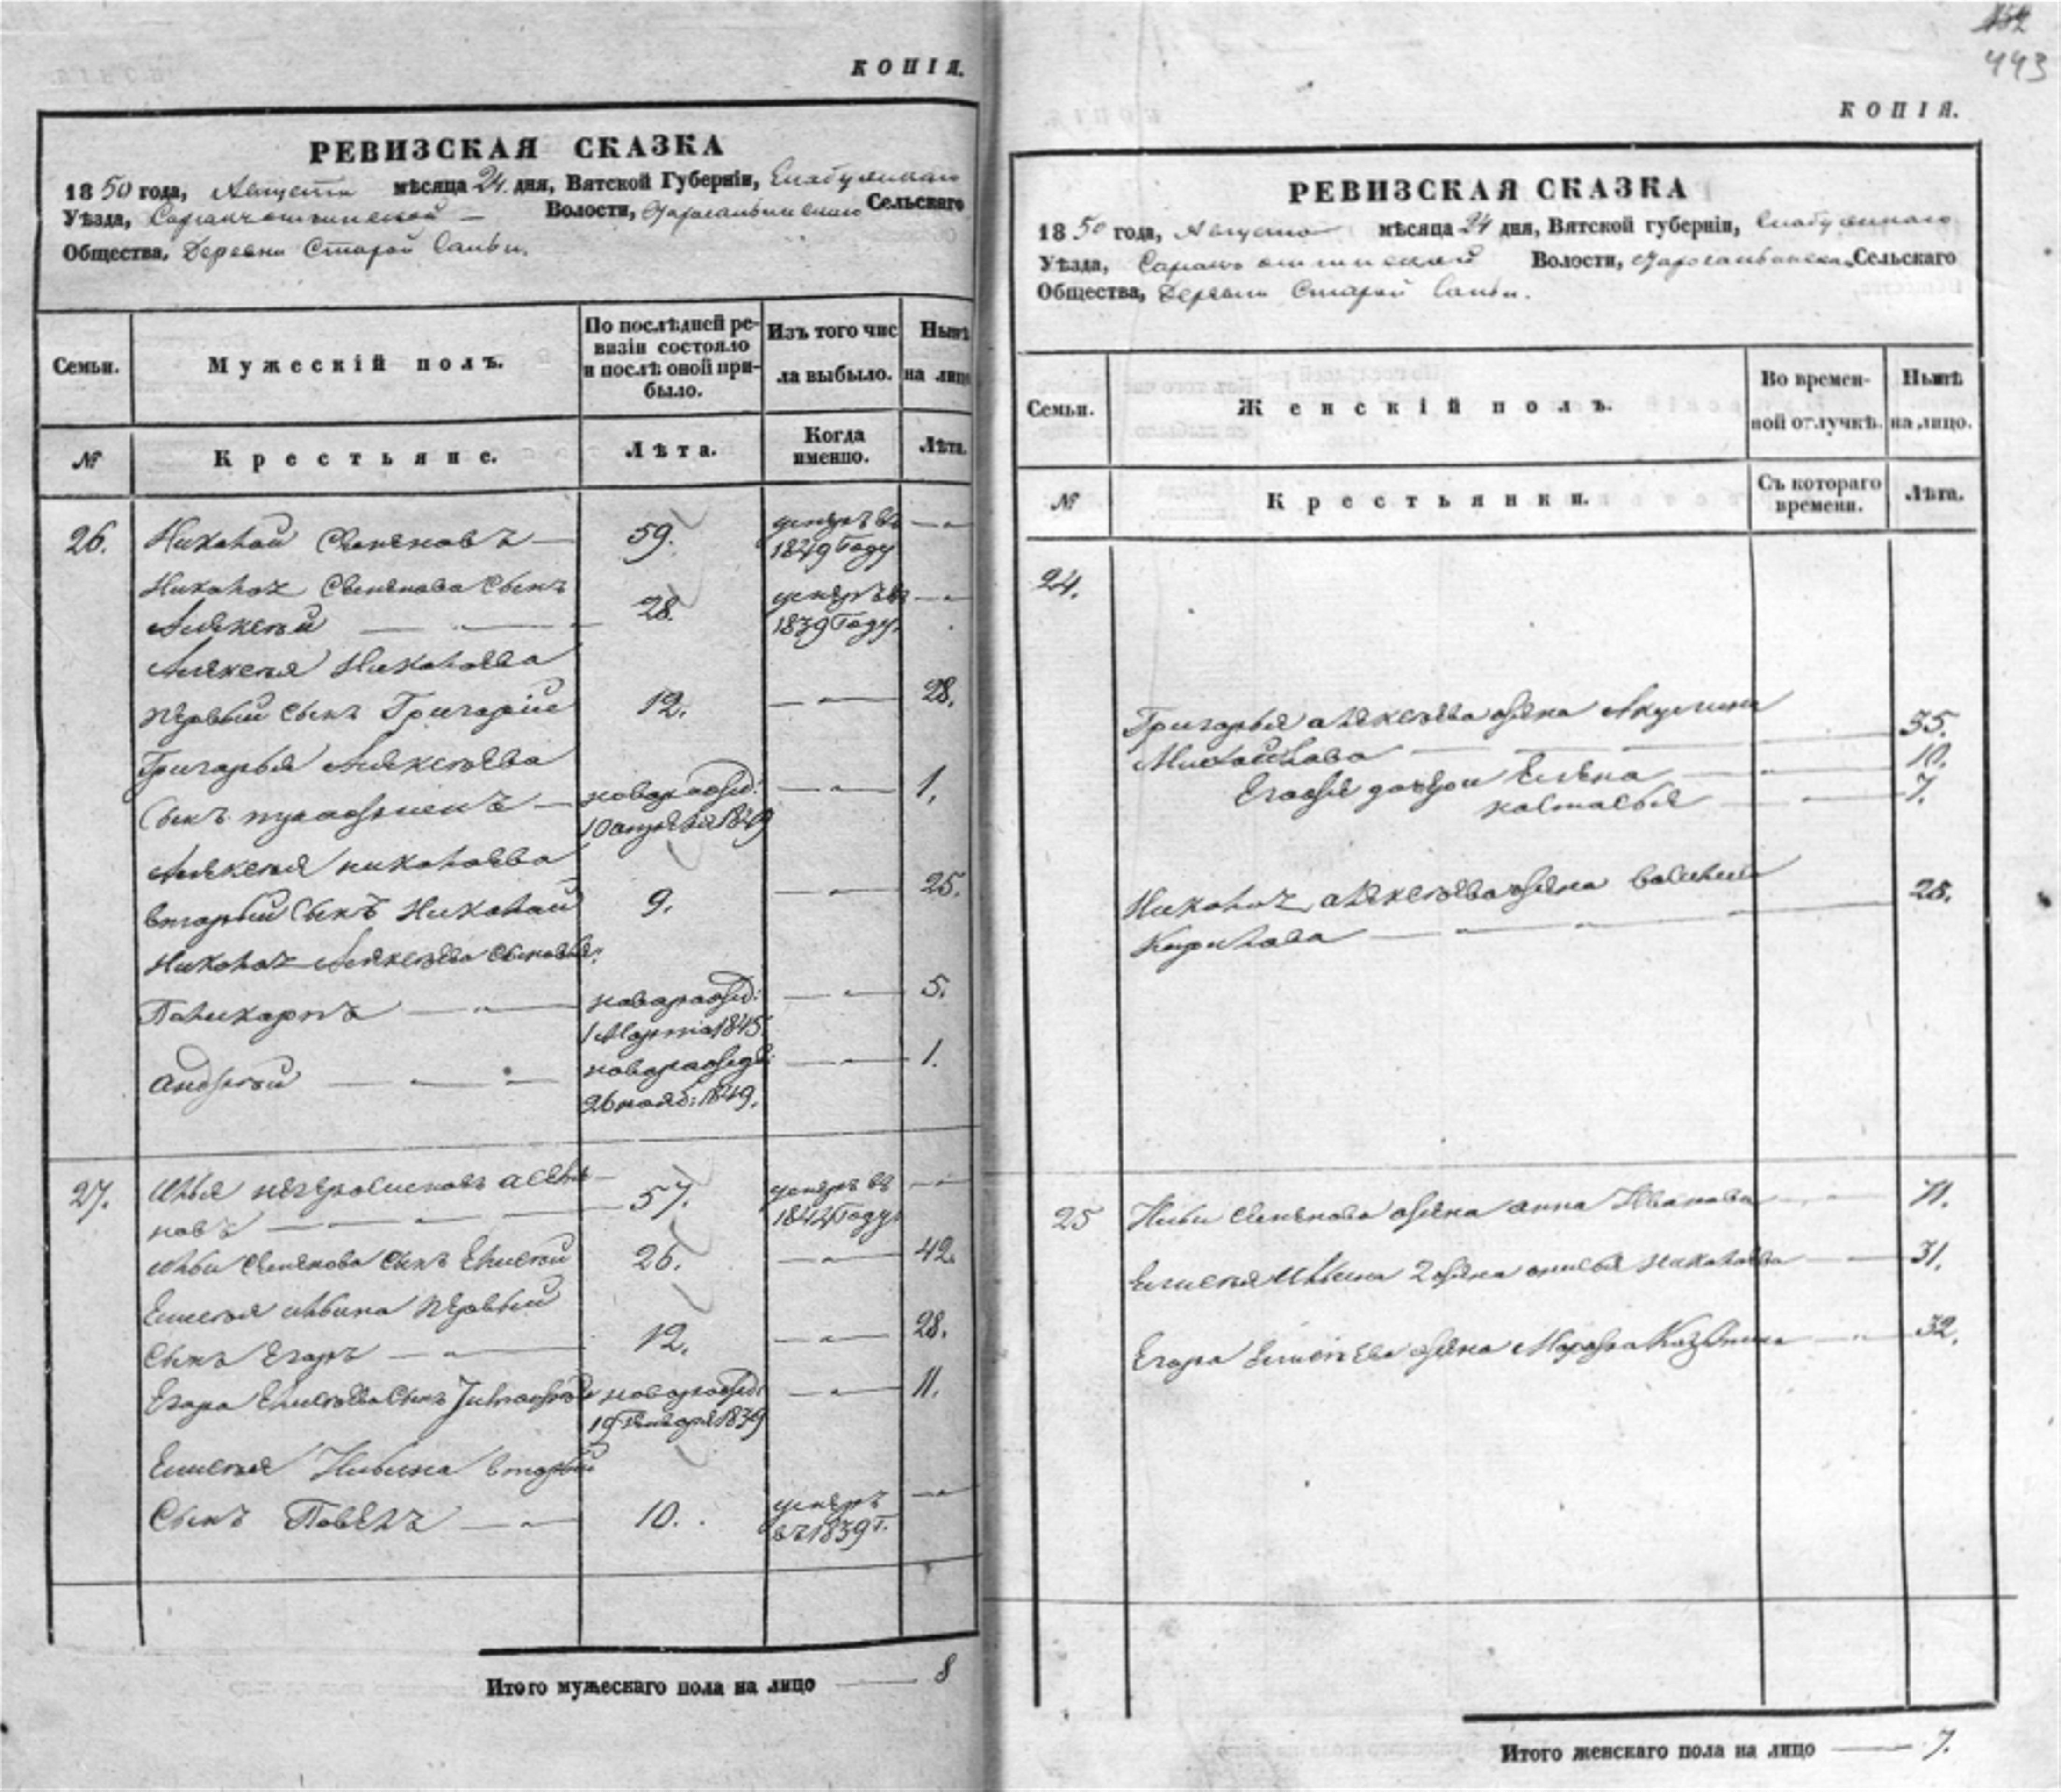 КОПІЯ.
РЕВИЗСКАЯ СКАЗКА
1850 года, Августа мѣсяца 24. дня, Вятской Губерніи, Елабужскаго
Уѣзда, Волости, Сельскаго
Общества, Деревни Старой Сальи.
Семьи. Мужескій полъ. По послѣдней ре- Изъ того чис Нынѣ
визіи состояло
и послѣ оной при- ла выбыло. на лицо
было.
№ Крестьяне. Лѣта. Когда Лѣта.
именно.
26. Николай Семеновъ 59. умеръ въ
1849 году
Николая Семенова сынъ умеръ въ
Алексей 28. 1839 году.
Алексея Николаева
первый сынъ Григорій 12. 28.
Григорья Алексеева
сынъ новорожд: 1.
10 апреля 1849
Алексея Николаева
вторый сынъ Николай 9. 25.
Николая Алексеева сыновья:
Поликарпъ новорожд: 5.
1 Марта 1845
Андрей новорожд: 1.
26 нояб: 1849.
27. Илья а Семе-
новъ 57. умеръ въ
1844 году
Ильи Семенова сынъ Елисей 26. 42.
Елисея Ильина первый
сынъ Егоръ 12. 28.
Егора Елисеева сынъ новорожд: 11.
19 Генваря 1839
Елисея Ильина вторый
сынъ Павелъ 10. умеръ
въ 1839 г.
Итого мужескаго пола на лицо 8
443
КОПІЯ.
РЕВИЗСКАЯ СКАЗКА
1850 года, Августа мѣсяца 24 дня, Вятской губерніи, Елабужскаго
Уѣзда, Волости, Сельскаго
Общества, Деревни Старой Сальи.
Семьи. Женскій полъ. Во времен- Нынѣ
ной отлучкѣ. на лицо.
№ Крестьянки. Съ котораго Лѣта.
времени.
24.
Григорья Алексеева жена Акулина
Михайлова 35.
Егоже дочери Елена 10.
Наталья 7.
Николая Алексеева жена Василиса 28.
Кирилова
25 Ильи Семенова жена Анна Иванова 71.
Елисея Ильина 2 жена Анисья Николаева 31.
Егора Елисеева жена Марфа Козмина 32.
Итого женскаго пола на лицо 7.